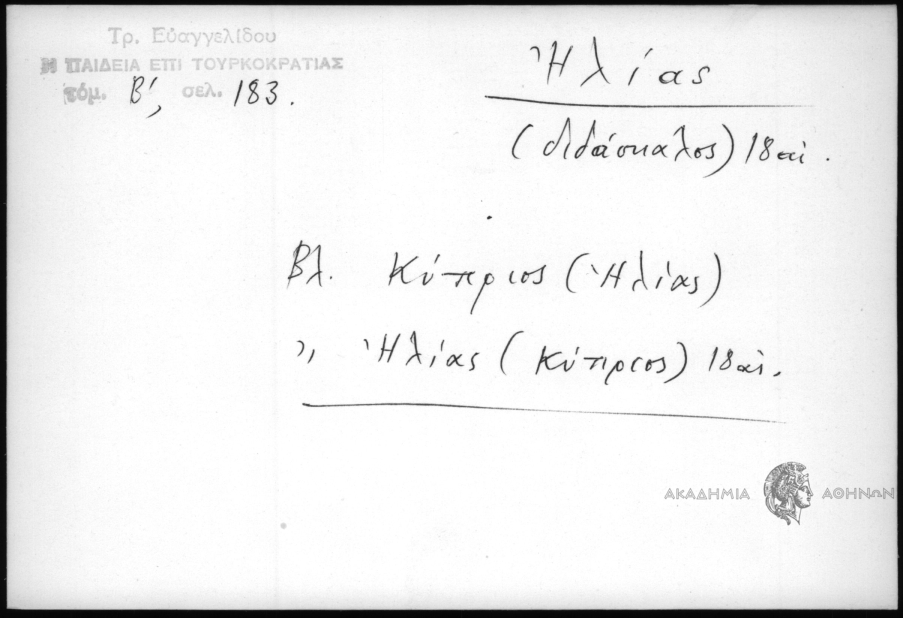 Τρ. Εὐαγγελίδου
Η ΠΑΙΔΕΙΑ ΕΠΙ ΤΟΥΡΚΟΚΡΑΤΙΑΣ
τόμ. Β', σελ. 183.
Ἠλίας
(διδάσκαλος) 18 αἰ.
Βλ. Κύπριος (Ἠλίας)
,, Ἠλίας (Κύπριος) 18 αἰ.
ΑΚΑΔΗΜΙΑ ΑΘΗΝΩΝ